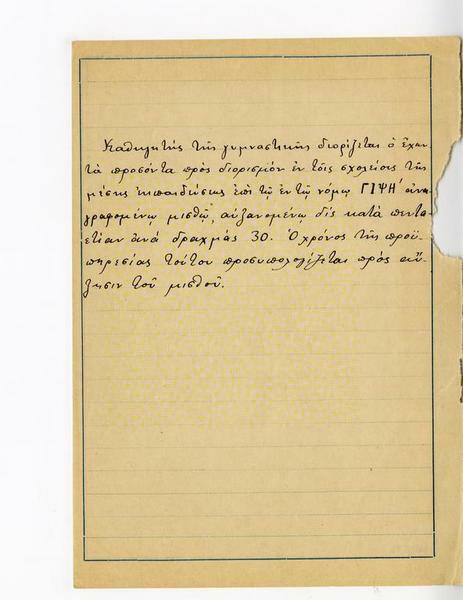 Καθηγητής τῆς γυμναστικῆς διορίζεται ὁ ἔχων
τὰ προσόντα πρὸς διορισμὸν ἐν τοῖς σχολείοις τῆς
μέσης ἐκπαιδεύσεως ἐπὶ τῷ ἐν τῷ νόμῳ ΓΙΨΗ' ἀνα
γραφομένῳ μισθῷ, αὐξανομένῳ δὶς κατὰ πεντα
ετίαν ἀνὰ δραχμὰς 30. Ὁ χρόνος τῆς προϋ-
πηρεσίας τούτου προσυπολογίζεται πρὸς αὔ-
ξησιν τοῦ μισθοῦ.